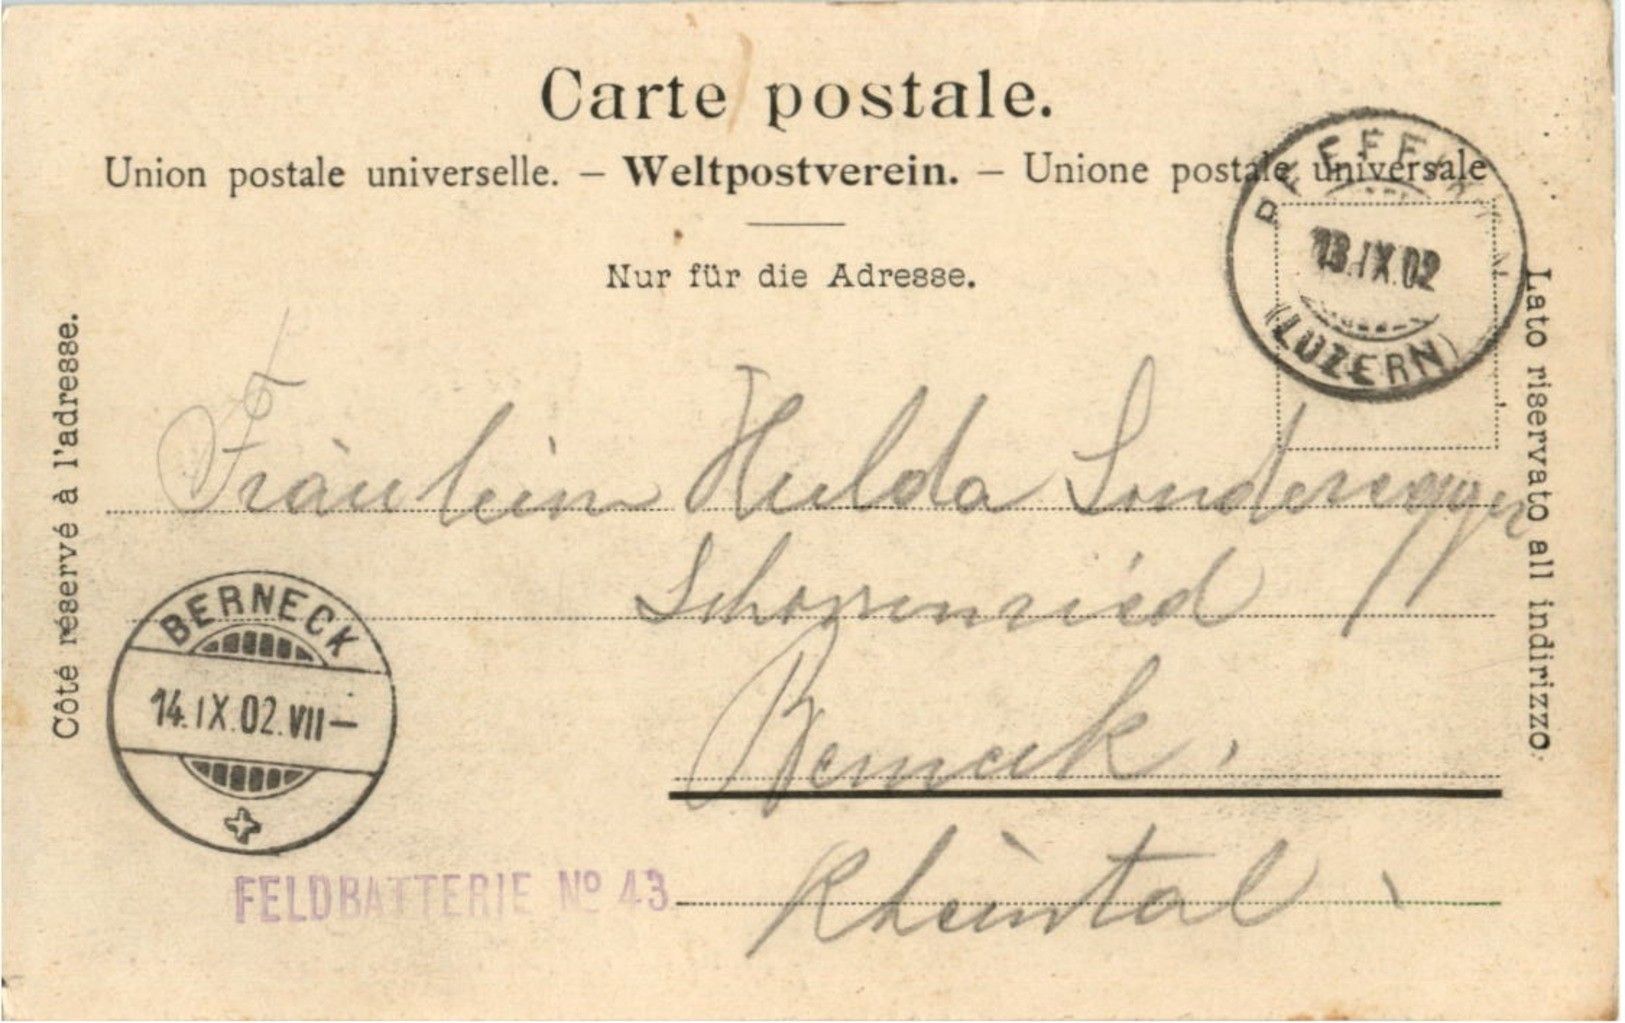 Carte postale.
Union postale universelle. – Weltpostverein. – Unione postale universale
Nur für die Adresse.
Côté réservé à l'adresse.
Lato riservato all indirizzo
PFEFFIKON
13.IX.02
(LUZERN)
Fräulein Hulda Sonderegger
Berneck.
Rheintal
BERNECK
14.IX.02.VII–
FELDBATTERIE Nº 43.